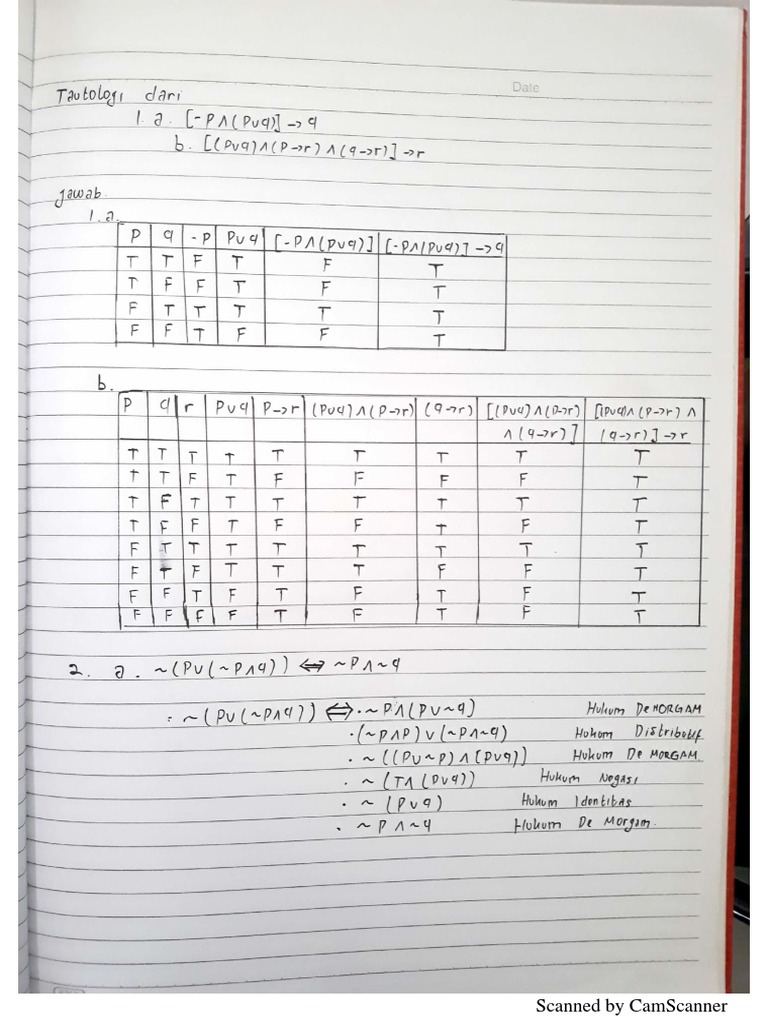 Date
Tautologi dari
1. a. [-P∧(P∪q)] → q
b. [(P∪q)∧(P→r)∧(q→r)] → r
Jawab.
1. a.
P q -P P∪q [-P∧(P∪q)] [-P∧(P∪q)] → q
T T F T F T
T F F T F T
F T T T T T
F F T F F T
b.
P q r P∪q P→r (P∪q)∧(P→r) (q→r) [(P∪q)∧(P→r) [(P∪q)∧(P→r)∧
∧(q→r)] (q→r)]→r
T T T T T T T T T
T T F T F F F F T
T F T T T T T T T
T F F T F F T F T
F T T T T T T T T
F T F T T T F F T
F F T F T F T F T
F F F F T F T F T
2. a. ~(P∪(~P∧q)) ⇔ ~P∧~q
: ~(P∪(~P∧q)) ⇔ · ~P∧(P∪~q) Hukum De MORGAM
· (~P∧P)∪(~P∧~q) Hukum Distributif
· ~((P∪~P)∧(P∪q)] Hukum De MORGAM
· ~(T∧(P∪q)) Hukum Negasi
· ~(P∪q) Hukum Identitas
· ~P∧~q Hukum De Morgam.
Scanned by CamScanner